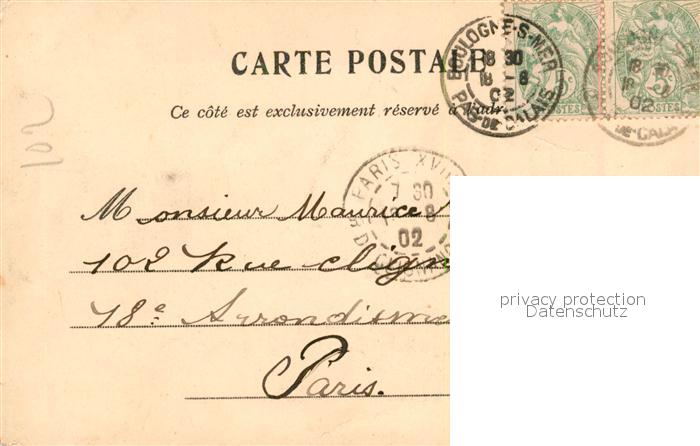 CARTE POSTALE
Ce côté est exclusivement réservé à l'adr
BOULOGNE-S-MER
18 30
18 8
02
PAS-DE-CALAIS
5
POSTES
18
02
DE-CALA
5
POSTES
102
PARIS XVIII
7 30
8
02
Monsieur Maurice
102 Rue clign
18e Arrondisme
Paris.
privacy protection
Datenschutz